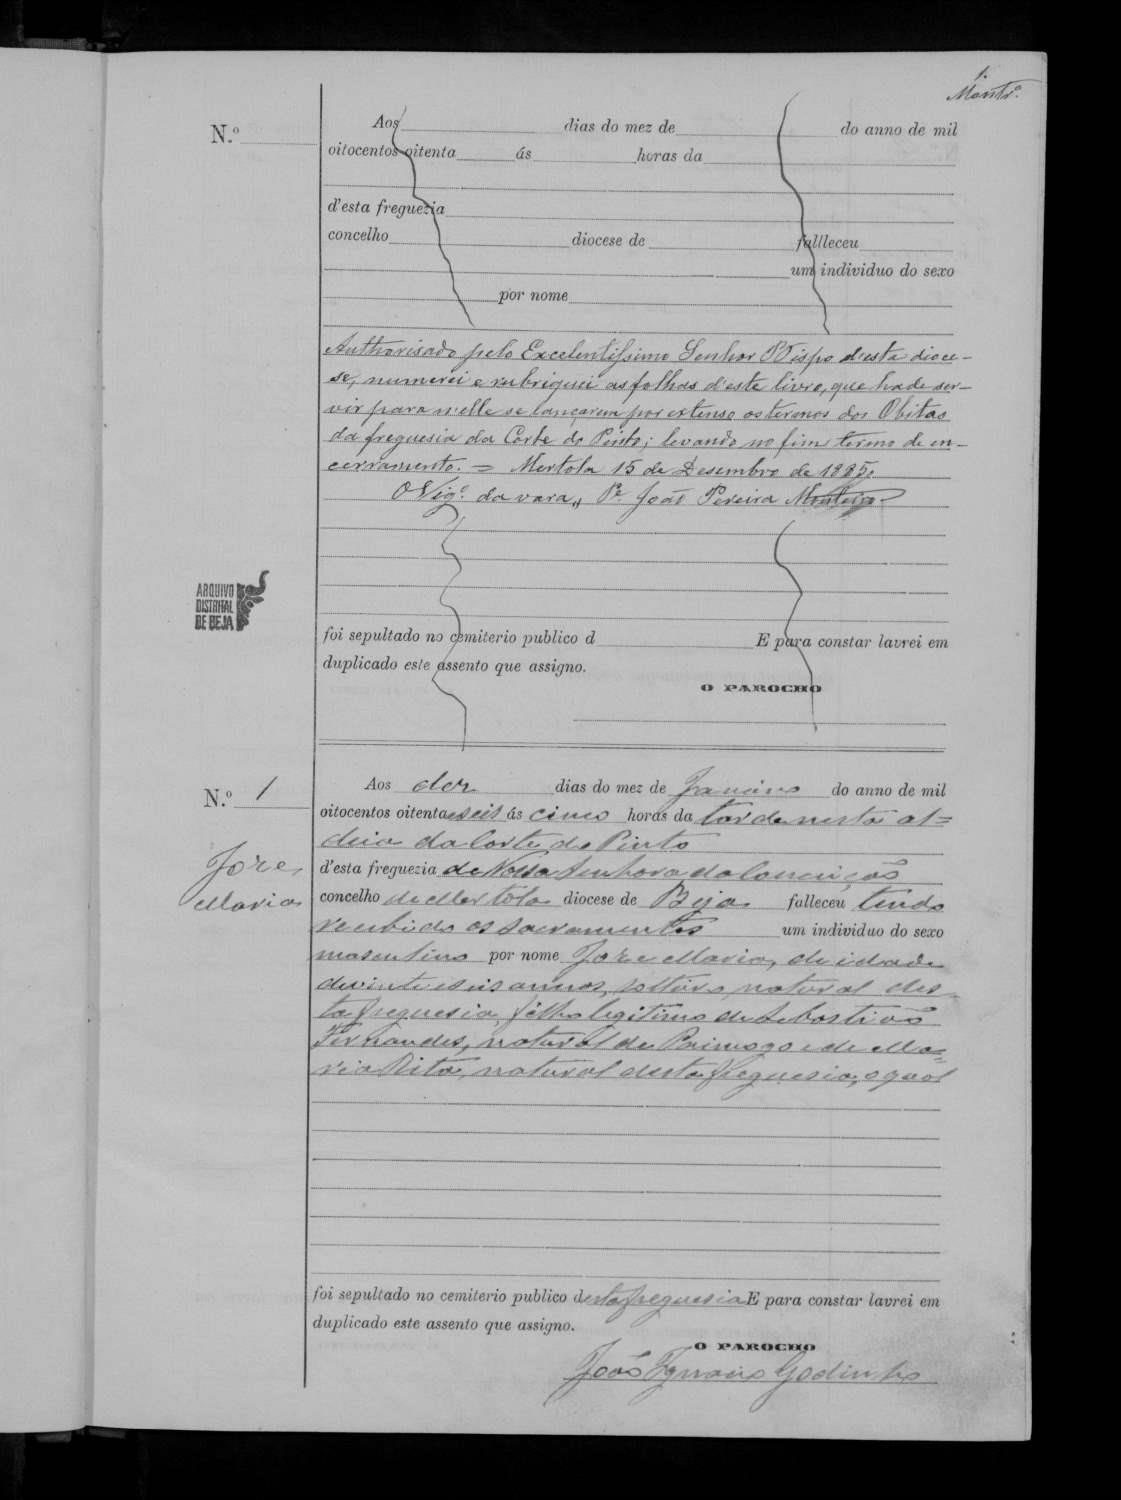 1.
Montrº.
N.º
Aos dias do mez de do anno de mil
oitocentos oitenta ás horas da
d'esta freguezia
concelho diocese de fallleceu
um individuo do sexo
por nome
Authorisado pelo Excelentissimo Senhor Bispo d'esta dioce-
se, numerei e rubriquei as folhas d'este livro, que hade ser-
vir para n'elle se lançarem por extenso os termos dos Obitos
da freguesia da Corte do Pinto; levando no fim termo de en-
cerramento. = Mertola 15 de Desembro de 1885.
O Vigº. da vara,, Pe. João Pereira Monteiro
ARQUIVO
DISTRITAL
DE BEJA
foi sepultado no cemiterio publico d E para constar lavrei em
duplicado este assento que assigno.
O PAROCHO
N.º 1
Jose
Maria
Aos dez dias do mez de Janeiro do anno de mil
oitocentos oitenta e seis ás cinco horas da tarde nesta al=
deia da Corte do Pinto
d'esta freguezia de Nossa Senhora da Conceição
concelho de Mertola diocese de Beja falleceu tendo
recebido os sacramentos um individuo do sexo
masculino por nome Jose Maria, de idade
de vinte e seis annos, solteiro, natural des-
ta freguesia, filho legitimo de Sebastião
Fernandes, natural de Pomogo e de Ma=
ria Rita, natural desta freguesia, o qual
foi sepultado no cemiterio publico desta freguesia E para constar lavrei em
duplicado este assento que assigno.
O PAROCHO
João Ignacio Godinho